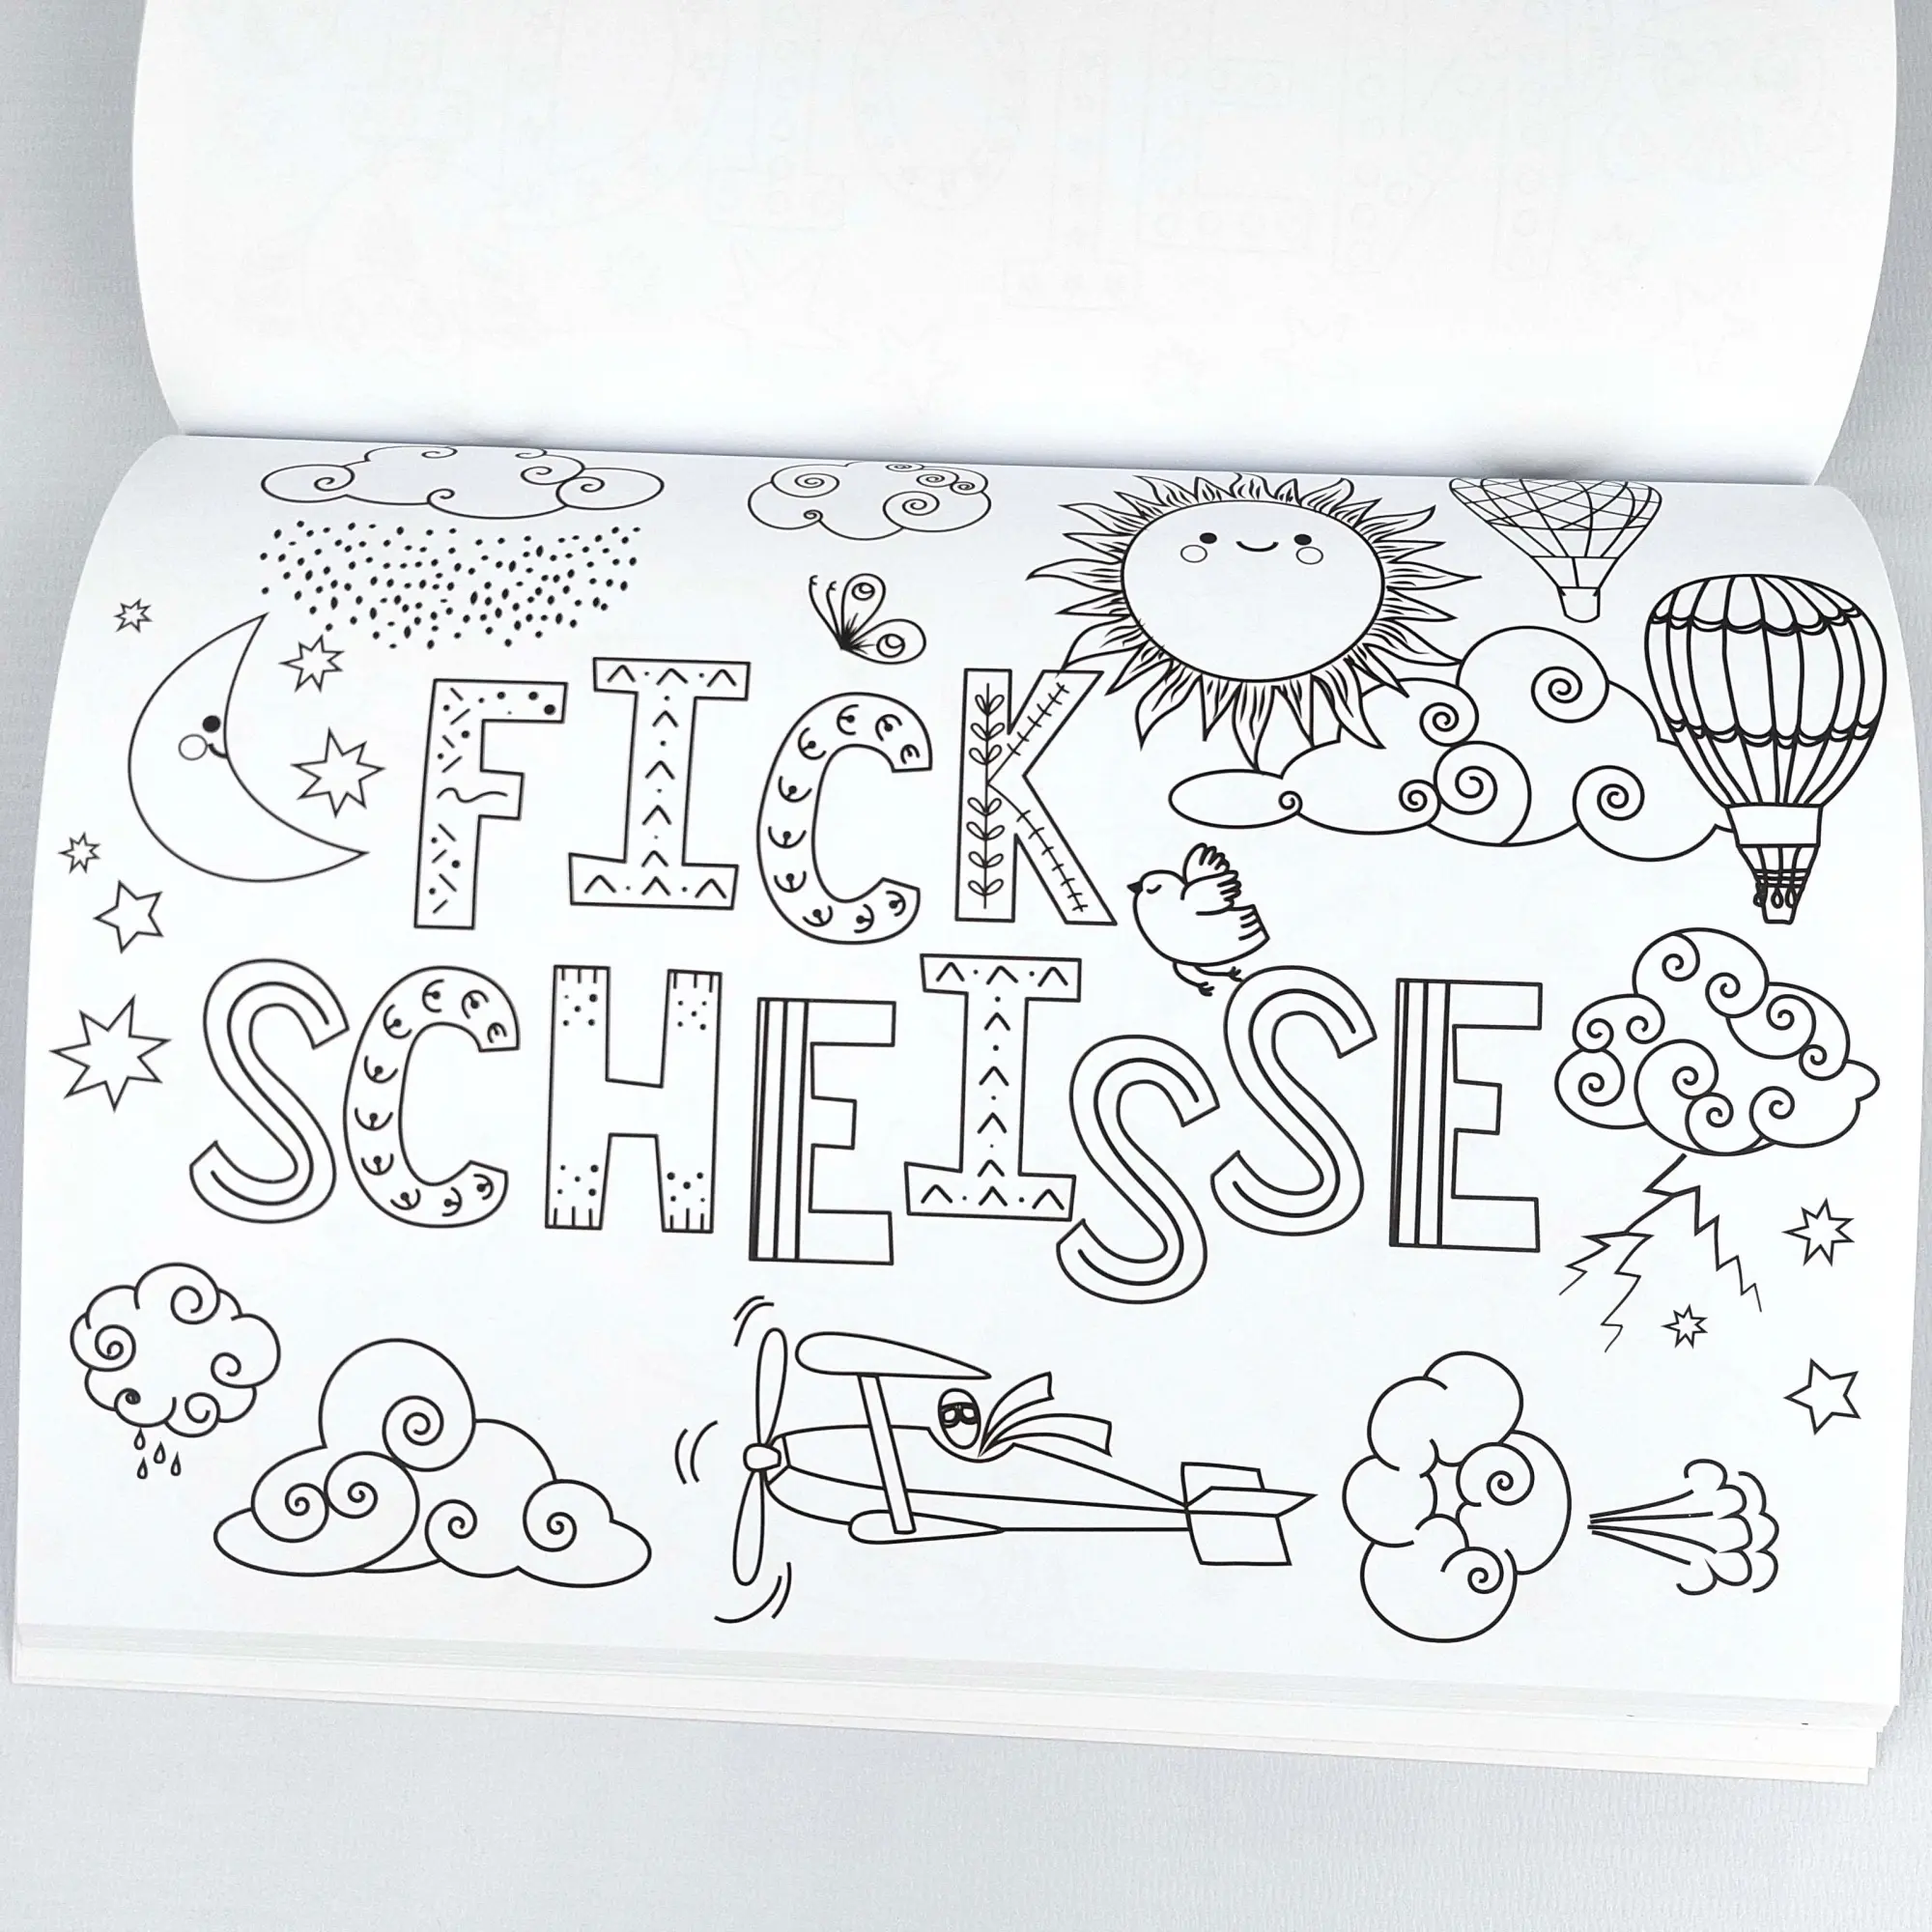 FICK
SCHEISSE